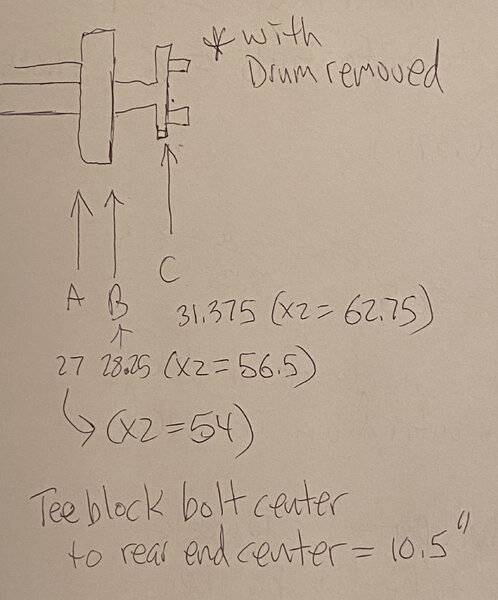 * with
Drum removed
A B C
31.375 (x2 = 62.75)
27 28.25 (x2 = 56.5)
(x2 = 54)
Tee block bolt center
to rear end center = 10.5"